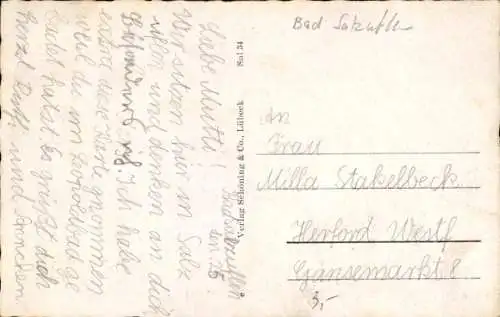 Bad Salzuflen
Bad Salzuflen
den 15.
Liebe Mutti!
Wir sitzen hier in Salz
uflen und denken an dich
Ich habe
extra diese Karte genommen
weil du im Leopoldbad ge
badet hatst. Es grüßt dich
herzl. Rudi, und
Sal 34
Verlag Schöning & Co., Lübeck
An
Frau
Milla Stakelbeck
Herford Westf
Gänsemarkt 8
3,-